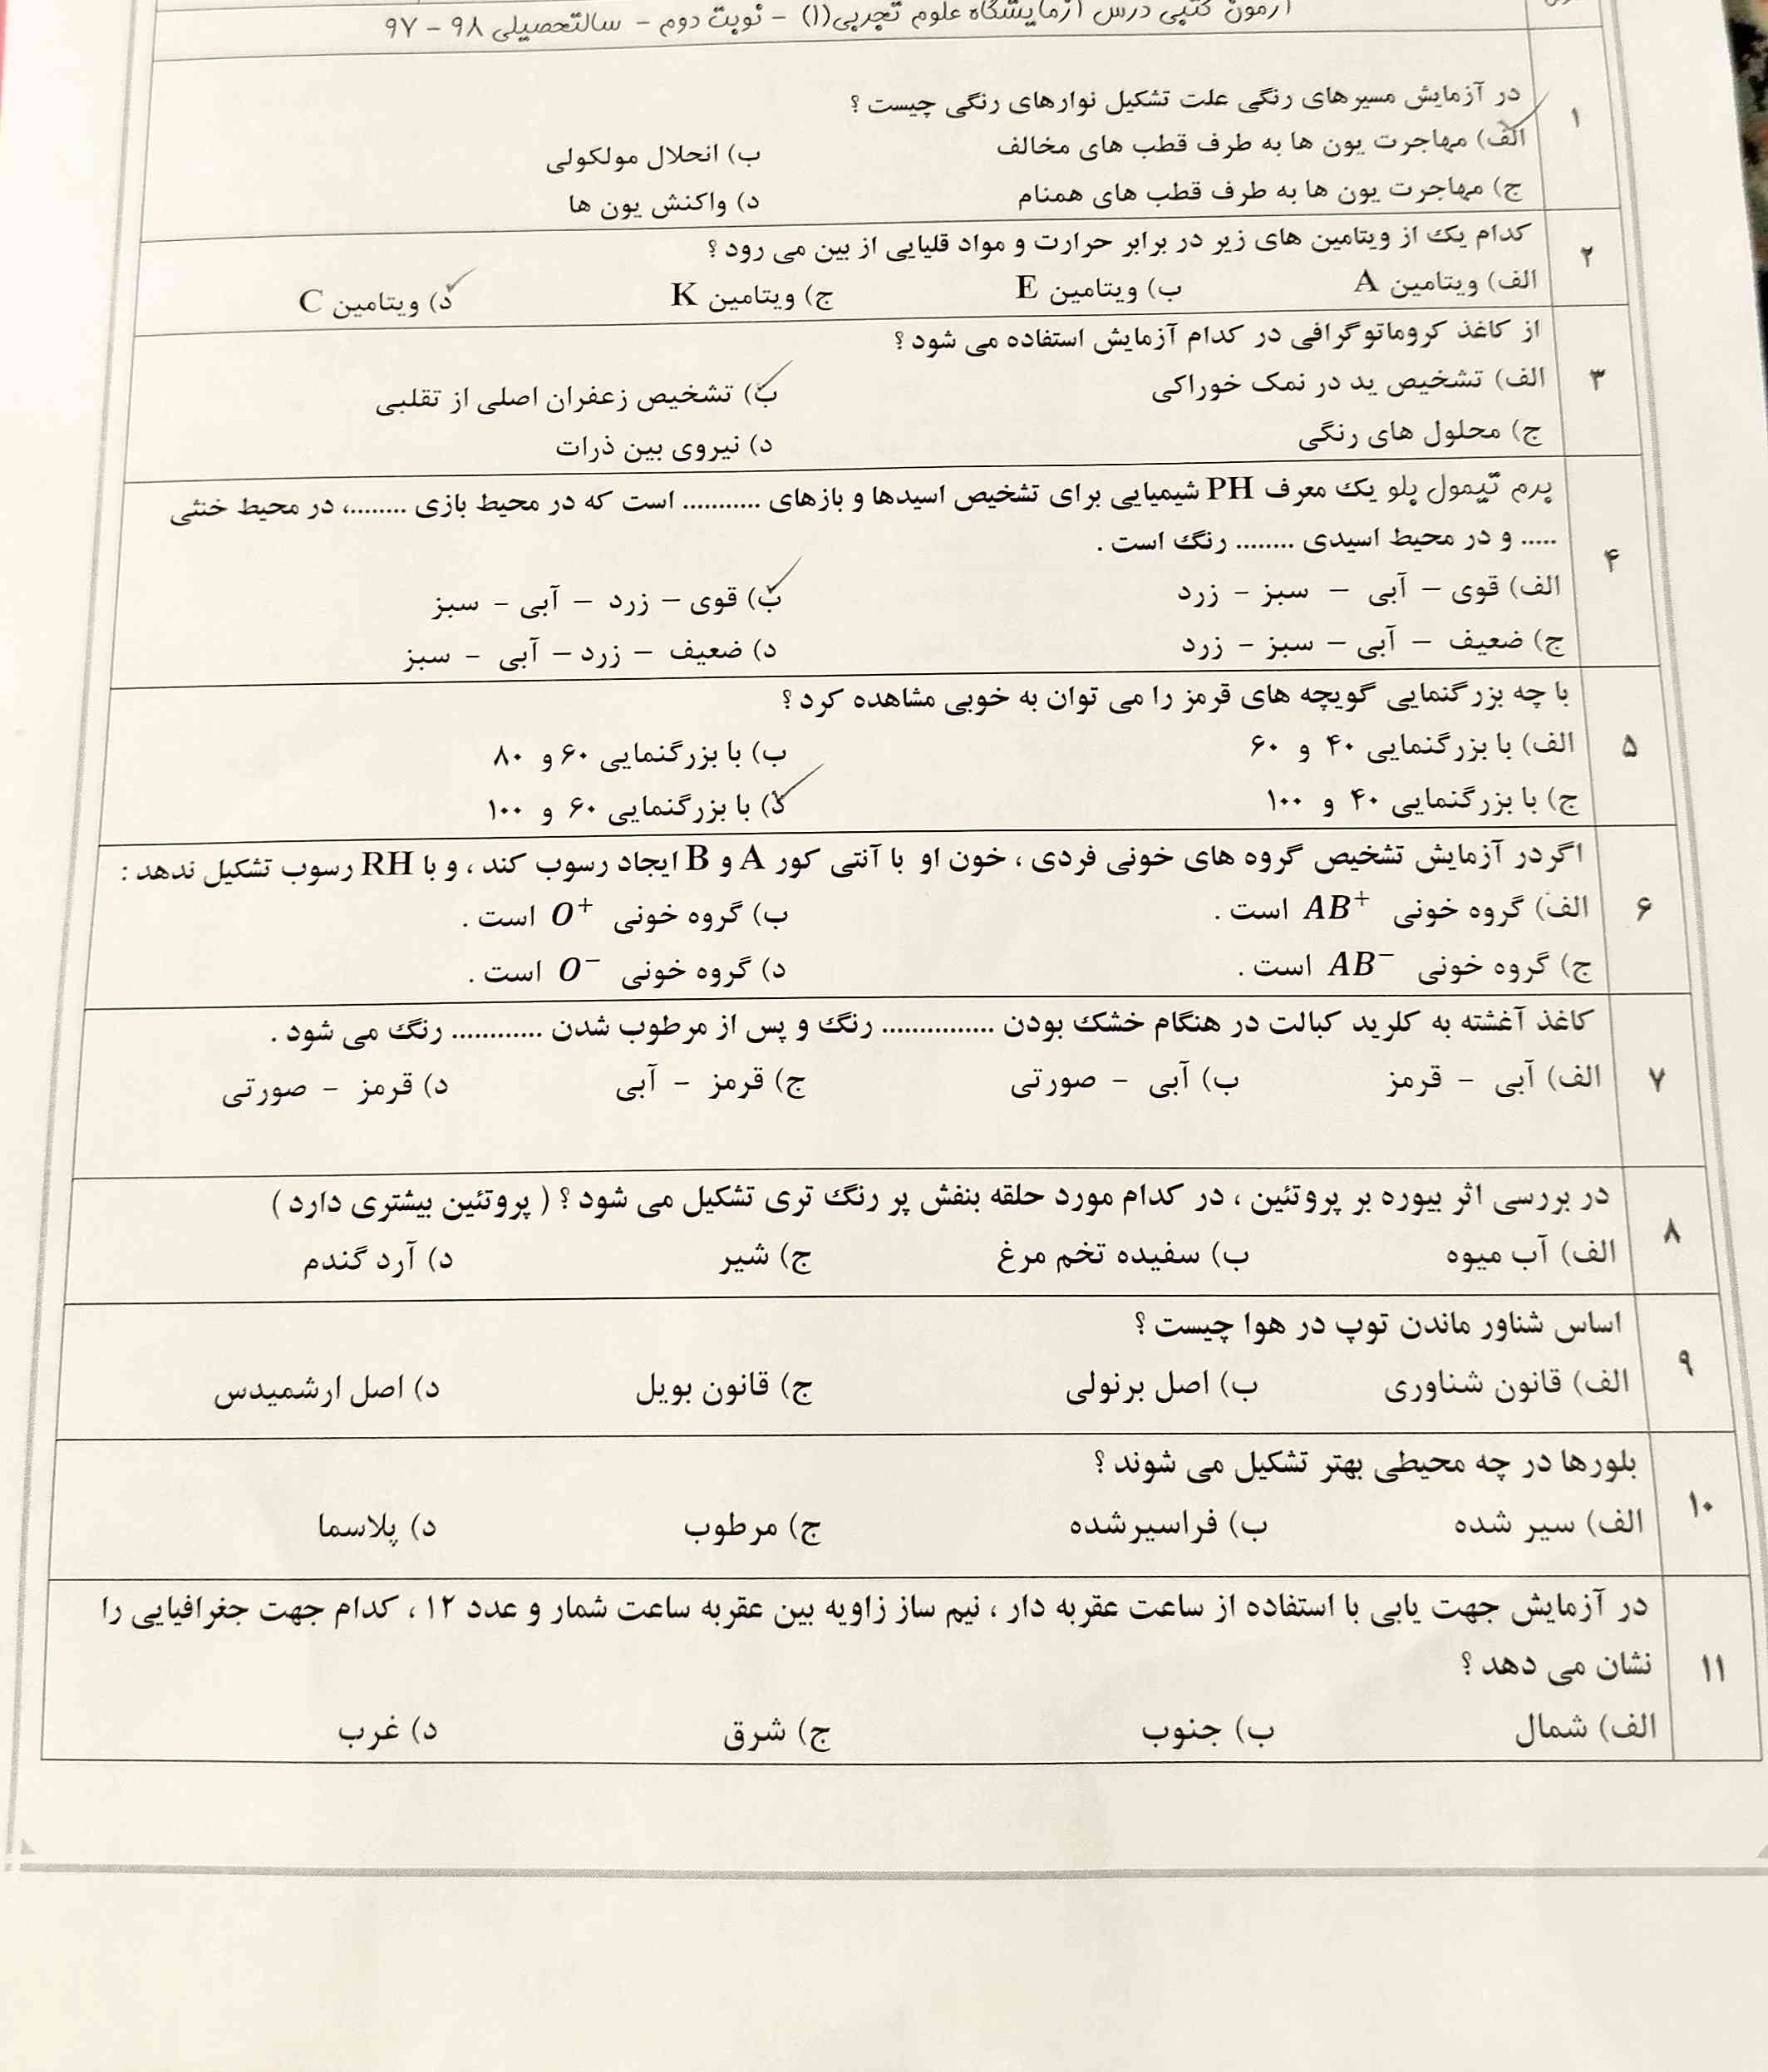 آزمون کتبی درس آزمایشگاه علوم تجربی(۱) - نوبت دوم - سالتحصیلی ۹۸ - ۹۷
۱
در آزمایش مسیرهای رنگی علت تشکیل نوارهای رنگی چیست ؟
الف) مهاجرت یون ها به طرف قطب های مخالف ب) انحلال مولکولی
ج) مهاجرت یون ها به طرف قطب های همنام د) واکنش یون ها
۲
کدام یک از ویتامین های زیر در برابر حرارت و مواد قلیایی از بین می رود ؟
الف) ویتامین A ب) ویتامین E ج) ویتامین K د) ویتامین C
۳
از کاغذ کروماتوگرافی در کدام آزمایش استفاده می شود ؟
الف) تشخیص ید در نمک خوراکی ب) تشخیص زعفران اصلی از تقلبی
ج) محلول های رنگی د) نیروی بین ذرات
۴
برم تیمول بلو یک معرف PH شیمیایی برای تشخیص اسیدها و بازهای ........... است که در محیط بازی ........، در محیط خنثی
..... و در محیط اسیدی ........ رنگ است .
الف) قوی – آبی – سبز - زرد ب) قوی – زرد – آبی - سبز
ج) ضعیف – آبی – سبز - زرد د) ضعیف – زرد – آبی - سبز
۵
با چه بزرگنمایی گویچه های قرمز را می توان به خوبی مشاهده کرد ؟
الف) با بزرگنمایی ۴۰ و ۶۰ ب) با بزرگنمایی ۶۰ و ۸۰
ج) با بزرگنمایی ۴۰ و ۱۰۰ د) با بزرگنمایی ۶۰ و ۱۰۰
۶
اگردر آزمایش تشخیص گروه های خونی فردی ، خون او با آنتی کور A و B ایجاد رسوب کند ، و با RH رسوب تشکیل ندهد :
الف) گروه خونی AB⁺ است . ب) گروه خونی O⁺ است .
ج) گروه خونی AB⁻ است . د) گروه خونی O⁻ است .
۷
کاغذ آغشته به کلرید کبالت در هنگام خشک بودن ............... رنگ و پس از مرطوب شدن ............ رنگ می شود .
الف) آبی - قرمز ب) آبی - صورتی ج) قرمز - آبی د) قرمز - صورتی
۸
در بررسی اثر بیوره بر پروتئین ، در کدام مورد حلقه بنفش پر رنگ تری تشکیل می شود ؟ ( پروتئین بیشتری دارد )
الف) آب میوه ب) سفیده تخم مرغ ج) شیر د) آرد گندم
۹
اساس شناور ماندن توپ در هوا چیست ؟
الف) قانون شناوری ب) اصل برنولی ج) قانون بویل د) اصل ارشمیدس
۱۰
بلورها در چه محیطی بهتر تشکیل می شوند ؟
الف) سیر شده ب) فراسیرشده ج) مرطوب د) پلاسما
۱۱
در آزمایش جهت یابی با استفاده از ساعت عقربه دار ، نیم ساز زاویه بین عقربه ساعت شمار و عدد ۱۲ ، کدام جهت جغرافیایی را
نشان می دهد ؟
الف) شمال ب) جنوب ج) شرق د) غرب